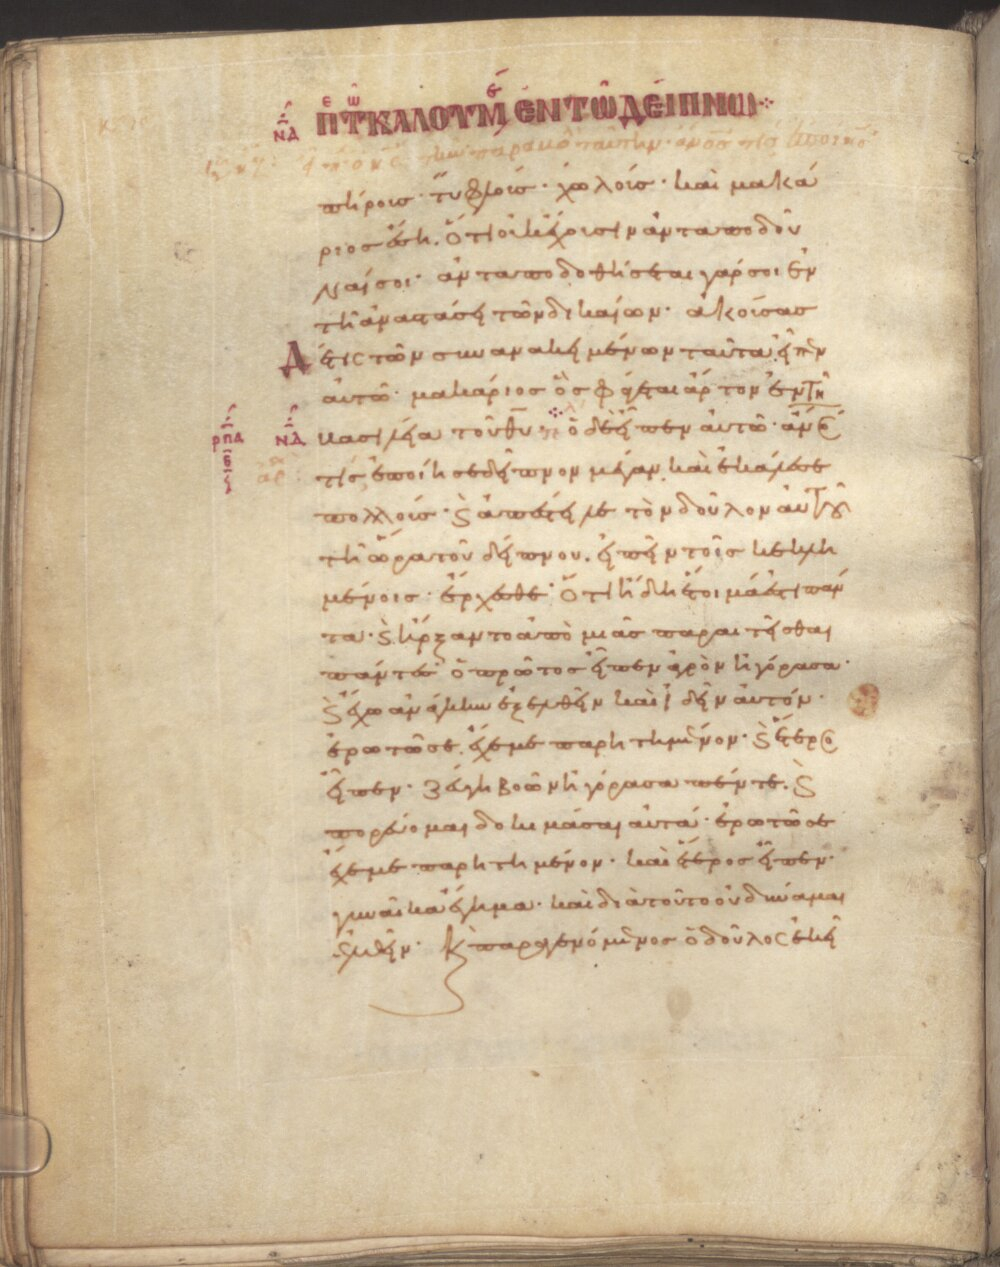 ν̅δ̅ π̅ε̅ τ̅ῶ̅ κἀλουμέ ἐν τῶ δείπνω
εἶπεν ὁ κς τὴν παραβολὴν ταύτην· ἄνος τίς ἐποίησε
πήροις· τυφλοίς· χωλοίς· καὶ μακά
ριος έση. ὅτι οὐκέχουσιν ἀνταποδοῦ
ναί σοι· ἀνταποδοθήσεται γάρ σοι ἐν
τῆ ἀναστάσει τῶν δικαίων· ἀκούσας
Δ έ τις τῶν συνανακειμένων ταῦτα, εἶπεν
ἀυτῶ· μακάριος ὃς φάγεται ἄρτον ἐν τῆ
ρ̅π̅α̅ ν̅δ̅ βασιλεία τοῦ θῦ· ὁ δὲ εἶπεν ἀυτῶ· ἄνος
ε̅ ἀρ τίς ἐποίησε δείπνον μέγαν· καὶ ἐκάλεσε
πολλοίς· ϗ ἀπέστειλε τὸν δοῦλον αυτοῦ
τῆ ὥρα τοῦ δείπνου. εἰπεῖν τοῖς κεκλη
μένοις· ἔρχεσθε· ὅτι ἤδη ἕτοιμά ἐστι πάν
τα· ϗ ἤρξαντο ἀπὸ μιᾶς παραιτεῖσθαι
πάντες· ὁ πρῶτος εἶπεν ἀγρὸν ἠγόρασα·
ϗ ἔχω ανάγκην ἐξελθεῖν καὶ ἰδεῖν αυτόν·
ἐρωτῶ σε. ἔχε με παρητημένον· ϗ ἕτερος
εἶπεν· ζεύγη βοῶν ἠγόρασα πέντε. ϗ
πορεύομαι δοκιμάσαι αυτά· ἐρωτῶ σε
ἔχε με παρητημένον· καὶ ἕτερος εἶπεν·
γυναῖκα ἔγημα· καὶ διὰ τοῦτο οὐ δύναμαι
ἐλθεῖν· κ παραγενόμενος ὁ δοῦλος ἐκεῖ